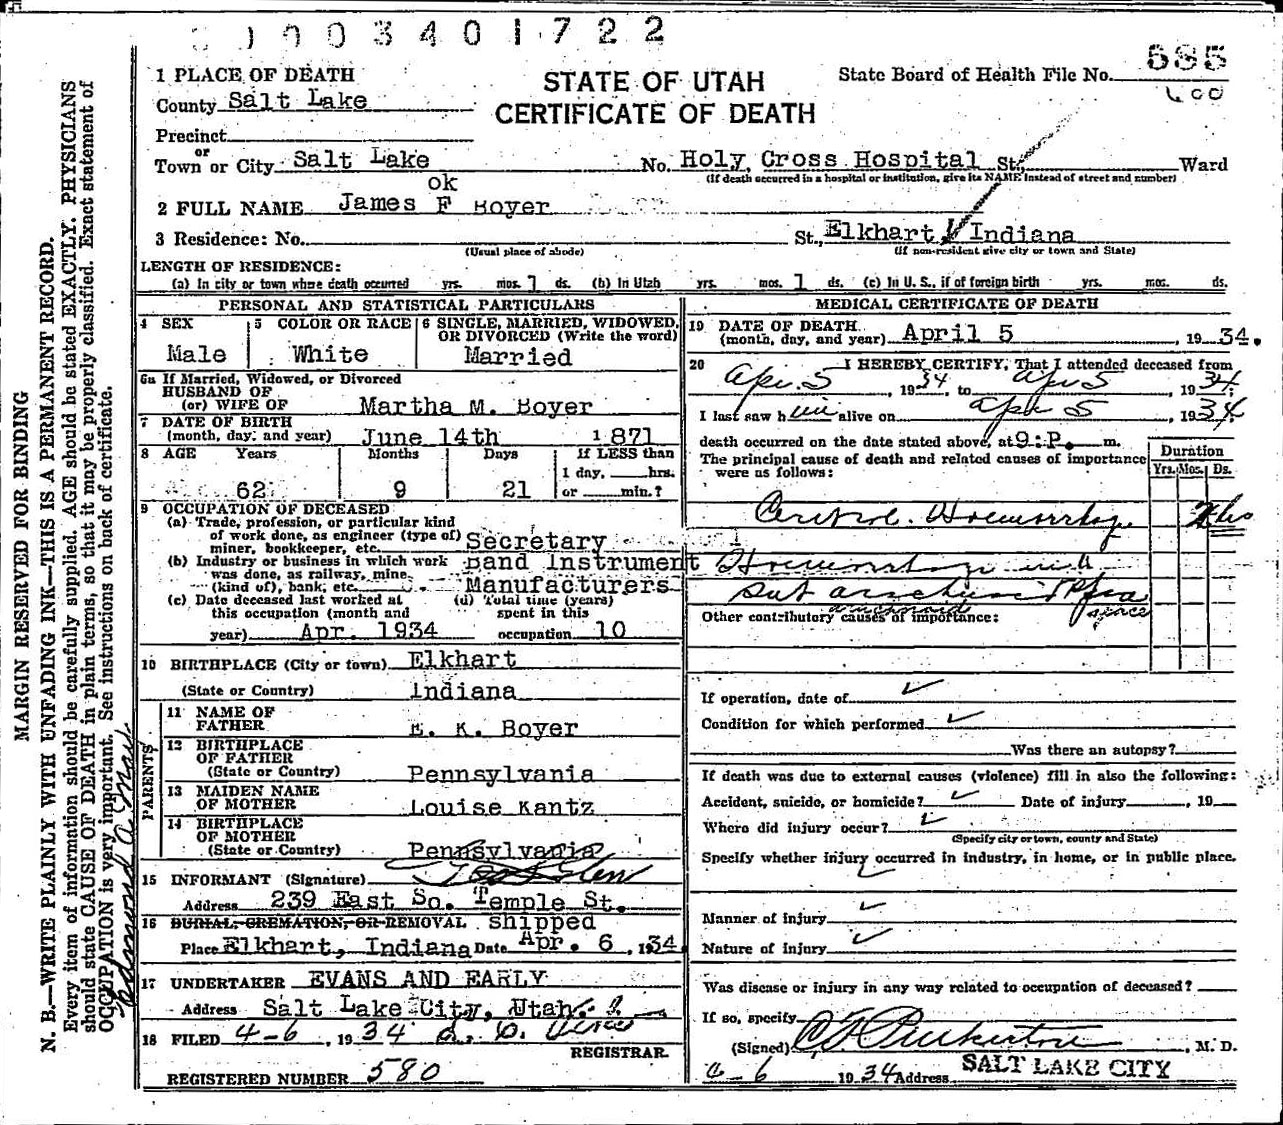 0 0 3 4 0 1 7 2 2
1 PLACE OF DEATH
STATE OF UTAH
CERTIFICATE OF DEATH
State Board of Health File No. 585
600
County Salt Lake
Precinct
or
Town or City Salt Lake No. Holy Cross Hospital St., Ward
(If death occurred in a hospital or institution, give its NAME instead of street and number)
ok
2 FULL NAME James F Boyer
3 Residence: No. St., Elkhart, Indiana
(Usual place of abode) (If non-resident give city or town and State)
LENGTH OF RESIDENCE:
(a) In city or town where death occurred yrs. mos. 1 ds. (b) In Utah yrs. mos. 1 ds. (c) In U. S., if of foreign birth yrs. mos. ds.
PERSONAL AND STATISTICAL PARTICULARS
4 SEX
Male
5 COLOR OR RACE
White
6 SINGLE, MARRIED, WIDOWED, OR DIVORCED (Write the word)
Married
6a If Married, Widowed, or Divorced
HUSBAND OF
(or) WIFE OF Martha M. Boyer
7 DATE OF BIRTH
(month, day, and year) June 14th 1871
8 AGE Years Months Days If LESS than
1 day, hrs.
62 9 21 or min.?
9 OCCUPATION OF DECEASED
(a) Trade, profession, or particular kind
of work done, as engineer (type of)
miner, bookkeeper, etc. Secretary
(b) Industry or business in which work Band Instrument
was done, as railway, mine,
(kind of), bank, etc. Manufacturers
(c) Date deceased last worked at
this occupation (month and
year) Apr. 1934
(d) Total time (years)
spent in this
occupation 10
10 BIRTHPLACE (City or town) Elkhart
(State or Country) Indiana
PARENTS
11 NAME OF
FATHER E. K. Boyer
12 BIRTHPLACE
OF FATHER
(State or Country) Pennsylvania
13 MAIDEN NAME
OF MOTHER Louise Kantz
14 BIRTHPLACE
OF MOTHER
(State or Country) Pennsylvania
15 INFORMANT (Signature)
Address 239 East So. Temple St.
16 BURIAL, CREMATION, OR REMOVAL shipped
Place Elkhart, Indiana Date Apr. 6, 1934
17 UNDERTAKER EVANS AND EARLY
Address Salt Lake City, Utah.
18 FILED 4-6, 1934
REGISTRAR.
REGISTERED NUMBER 580
MEDICAL CERTIFICATE OF DEATH
19 DATE OF DEATH
(month, day, and year) April 5, 1934.
20 I HEREBY CERTIFY, That I attended deceased from
Apr. 5, 1934, to Apr 5, 1934.
I last saw him alive on Apr 5, 1934
death occurred on the date stated above, at 9: P. m.
The principal cause of death and related causes of importance
were as follows:
Duration
Yrs. Mos. Ds.
Hemorrhage
Hemorrhage
sub arachnoid
arachnoid
space
Other contributory causes of importance:
If operation, date of
Condition for which performed
Was there an autopsy?
If death was due to external causes (violence) fill in also the following:
Accident, suicide, or homicide? Date of injury, 19
Where did injury occur?
(Specify city or town, county and State)
Specify whether injury occurred in industry, in home, or in public place.
Manner of injury
Nature of injury
Was disease or injury in any way related to occupation of deceased?
If so, specify
(Signed) Pinkerton, M. D.
4-6 1934 Address SALT LAKE CITY
MARGIN RESERVED FOR BINDING
N. B.—WRITE PLAINLY WITH UNFADING INK—THIS IS A PERMANENT RECORD.
Every item of information should be carefully supplied. AGE should be stated EXACTLY. PHYSICIANS
should state CAUSE OF DEATH in plain terms, so that it may be properly classified. Exact statement of
OCCUPATION is very important. See instructions on back of certificate.